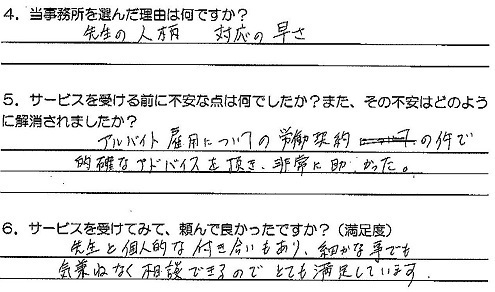 4．当事務所を選んだ理由は何ですか？
先生の人柄　対応の早さ
5．サービスを受ける前に不安な点は何でしたか？また、その不安はどのよう
に解消されましたか？
アルバイト雇用についての労働契約の件で
的確なアドバイスを頂き、非常に助かった。
6．サービスを受けてみて、頼んで良かったですか？（満足度）
先生と個人的な付き合いもあり、細かな事でも
気兼ねなく相談できるのでとても満足しています。